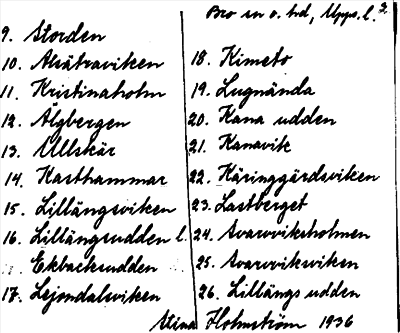 Bro sn o. hd, Upps. l. 2
9. Storden
10. Alsätraviken
11. Kristinaholm
12. Älgbergen
13. Ullskär
14. Kasthammar
15. Lillängsviken
16. Lillängsudden l.
Ekbacksudden
17. Lejondalsviken
18. Kimeto
19. Lugnända
20. Kana udden
21. Kanavik
22. Käringgårdsviken
23. Lastberget
24. Svarvviksholmen
25. Svarvviksviken
26. Lillängs udden
Stina Holmström 1936